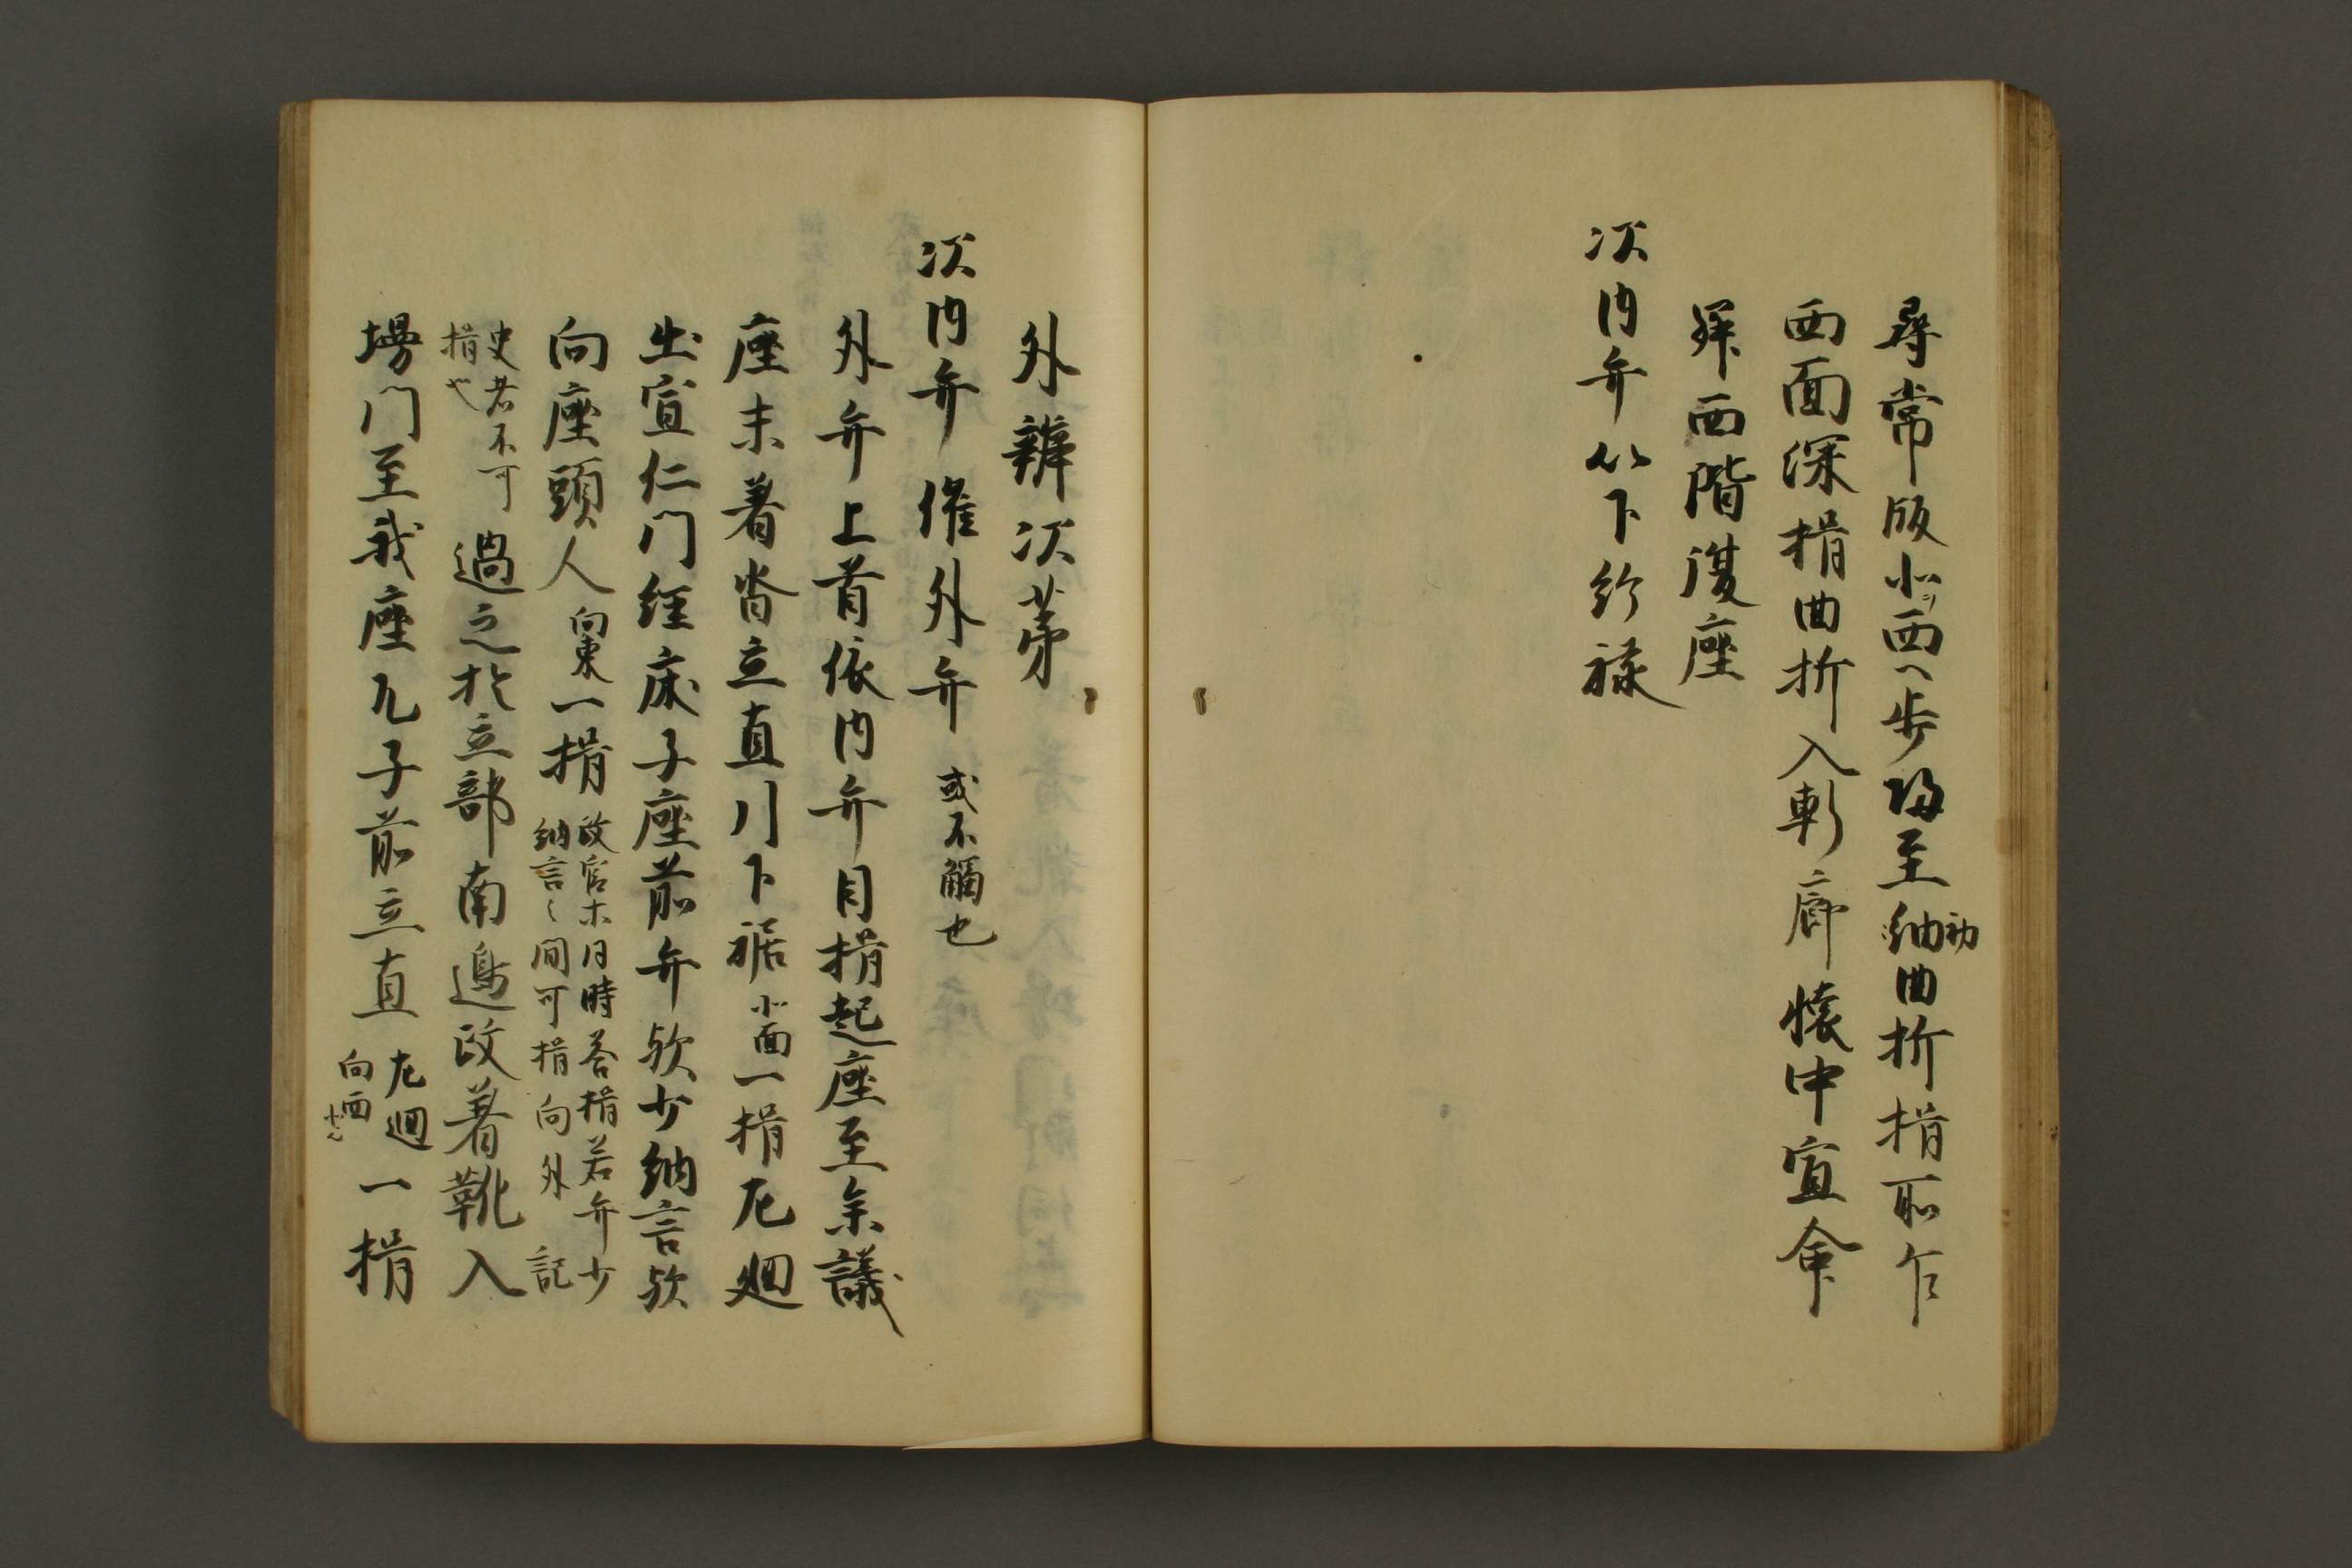 尋常版北ヲ西へ歩帰至初紬曲折揖所乍
西面深揖曲折入軒廊懐中宣命
昇西階復座
次内弁以下給禄
外辨次第
次内弁催外弁 或不觸也
外弁上首依内弁目揖起座至参議
座末著沓立直引下裾 北面 一揖左廻
出宣仁門経床子座前弁欤少納言欤
向座頭人 向東 一揖 政官ホ同時答揖若弁少
納言々間可揖向外記
史者不可
揖也 過之於立部南邊改著靴入
場門至我座兀子前立直 左廻
向西 一揖